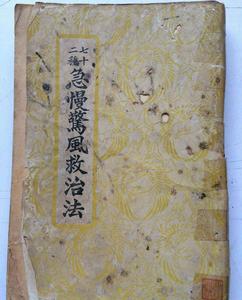 七十二種
急慢驚風救治法